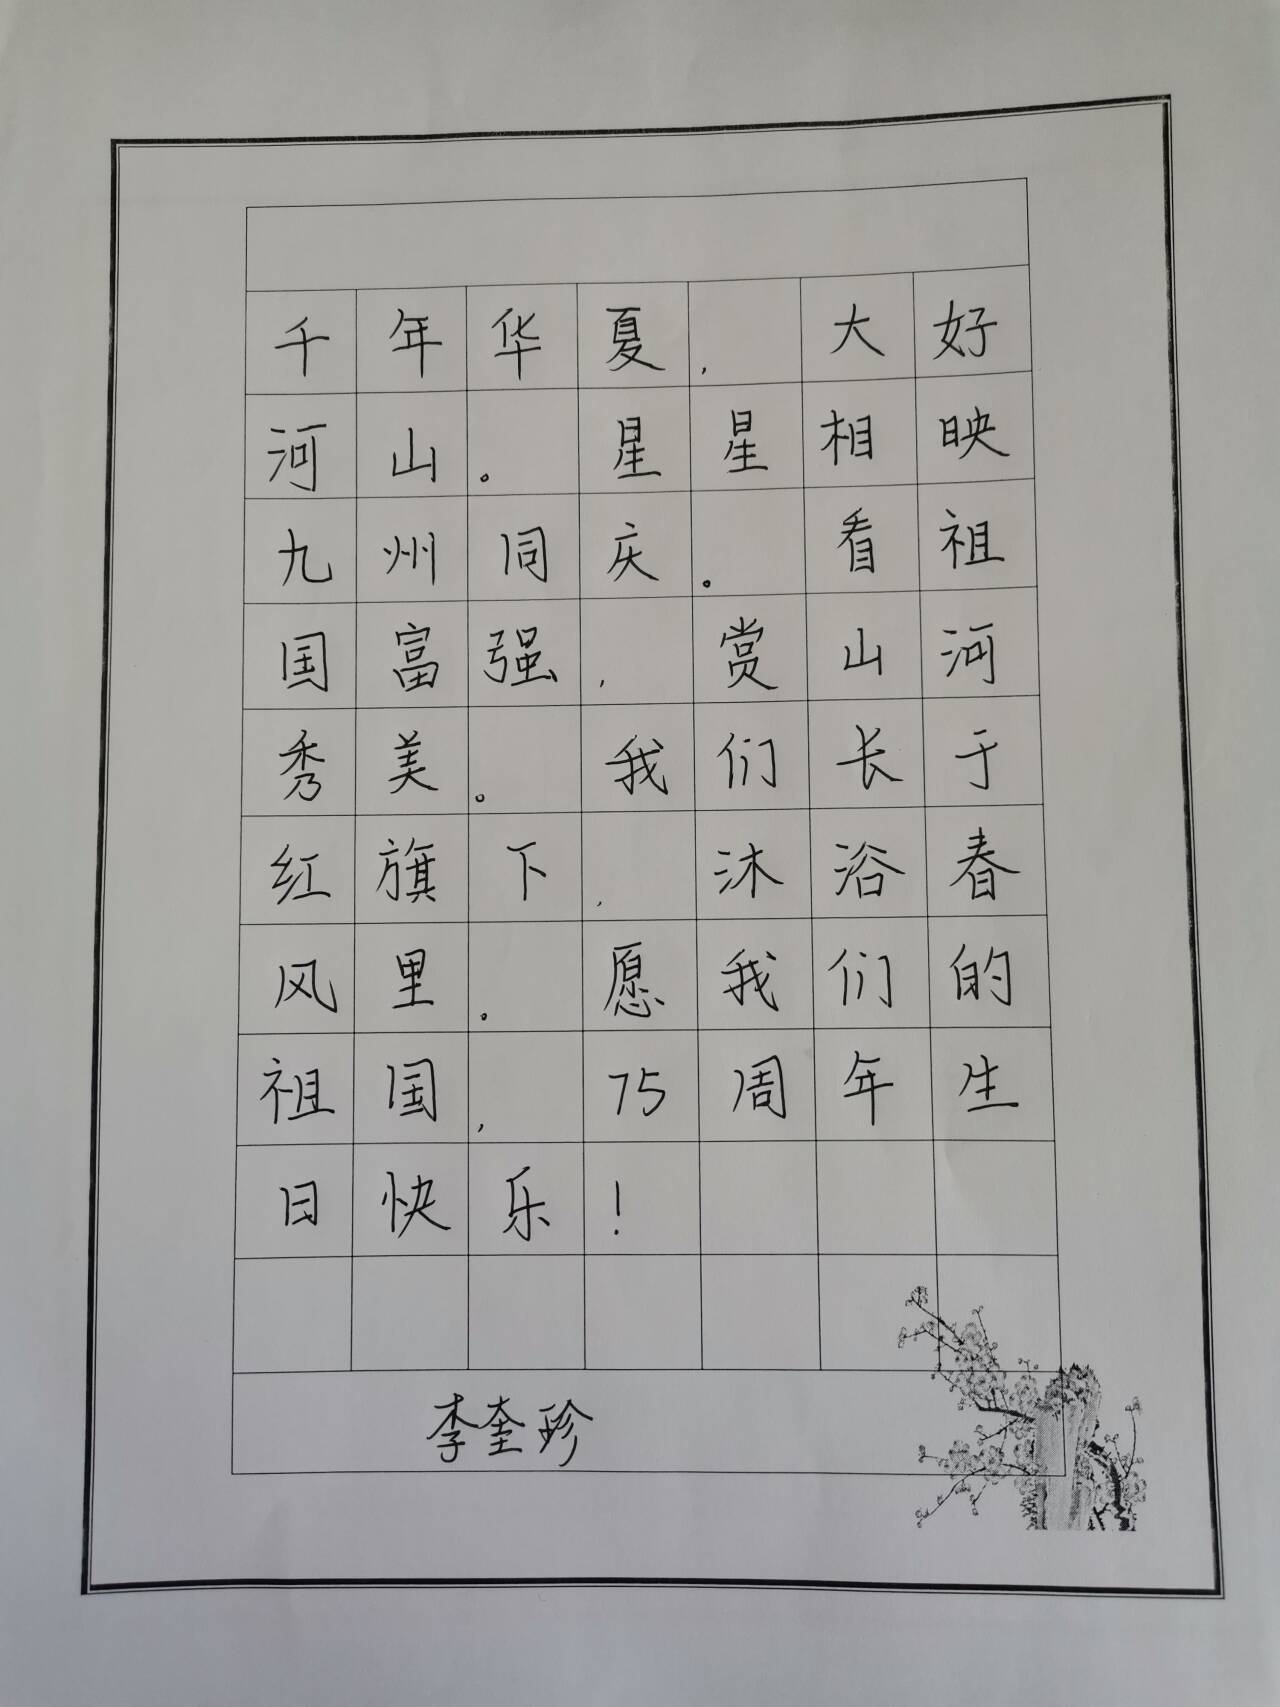 千年华夏，大好
河山。星星相映
九州同庆。看祖
国富强，赏山河
秀美。我们长于
红旗下，沐浴春
风里。愿我们的
祖国，75周年生
日快乐！
李奎珍